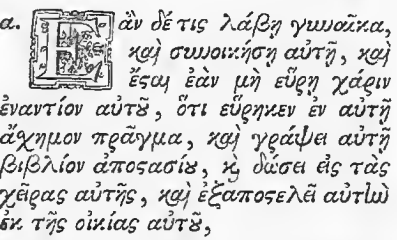 α. Ἐὰν δέ τις λάβῃ γυναῖκα,
καὶ συνοικήσῃ αὐτῇ, καὶ
ἔϛαι ἐὰν μὴ εὕρῃ χάριν
ἐναντίον αὐτȣ͂, ὅτι εὕρηκεν ἐν αὐτῇ
ἄχημον πρᾶγμα, καὶ γράψει αὐτῇ
βιβλίον ἀποϛασίȣ, ϗ̀ δώσει εἰς τὰς
χεῖρας αὐτῆς, καὶ ἐξαποϛελεῖ αὐτὴν
ἐκ τῆς οἰκίας αὐτȣ͂,